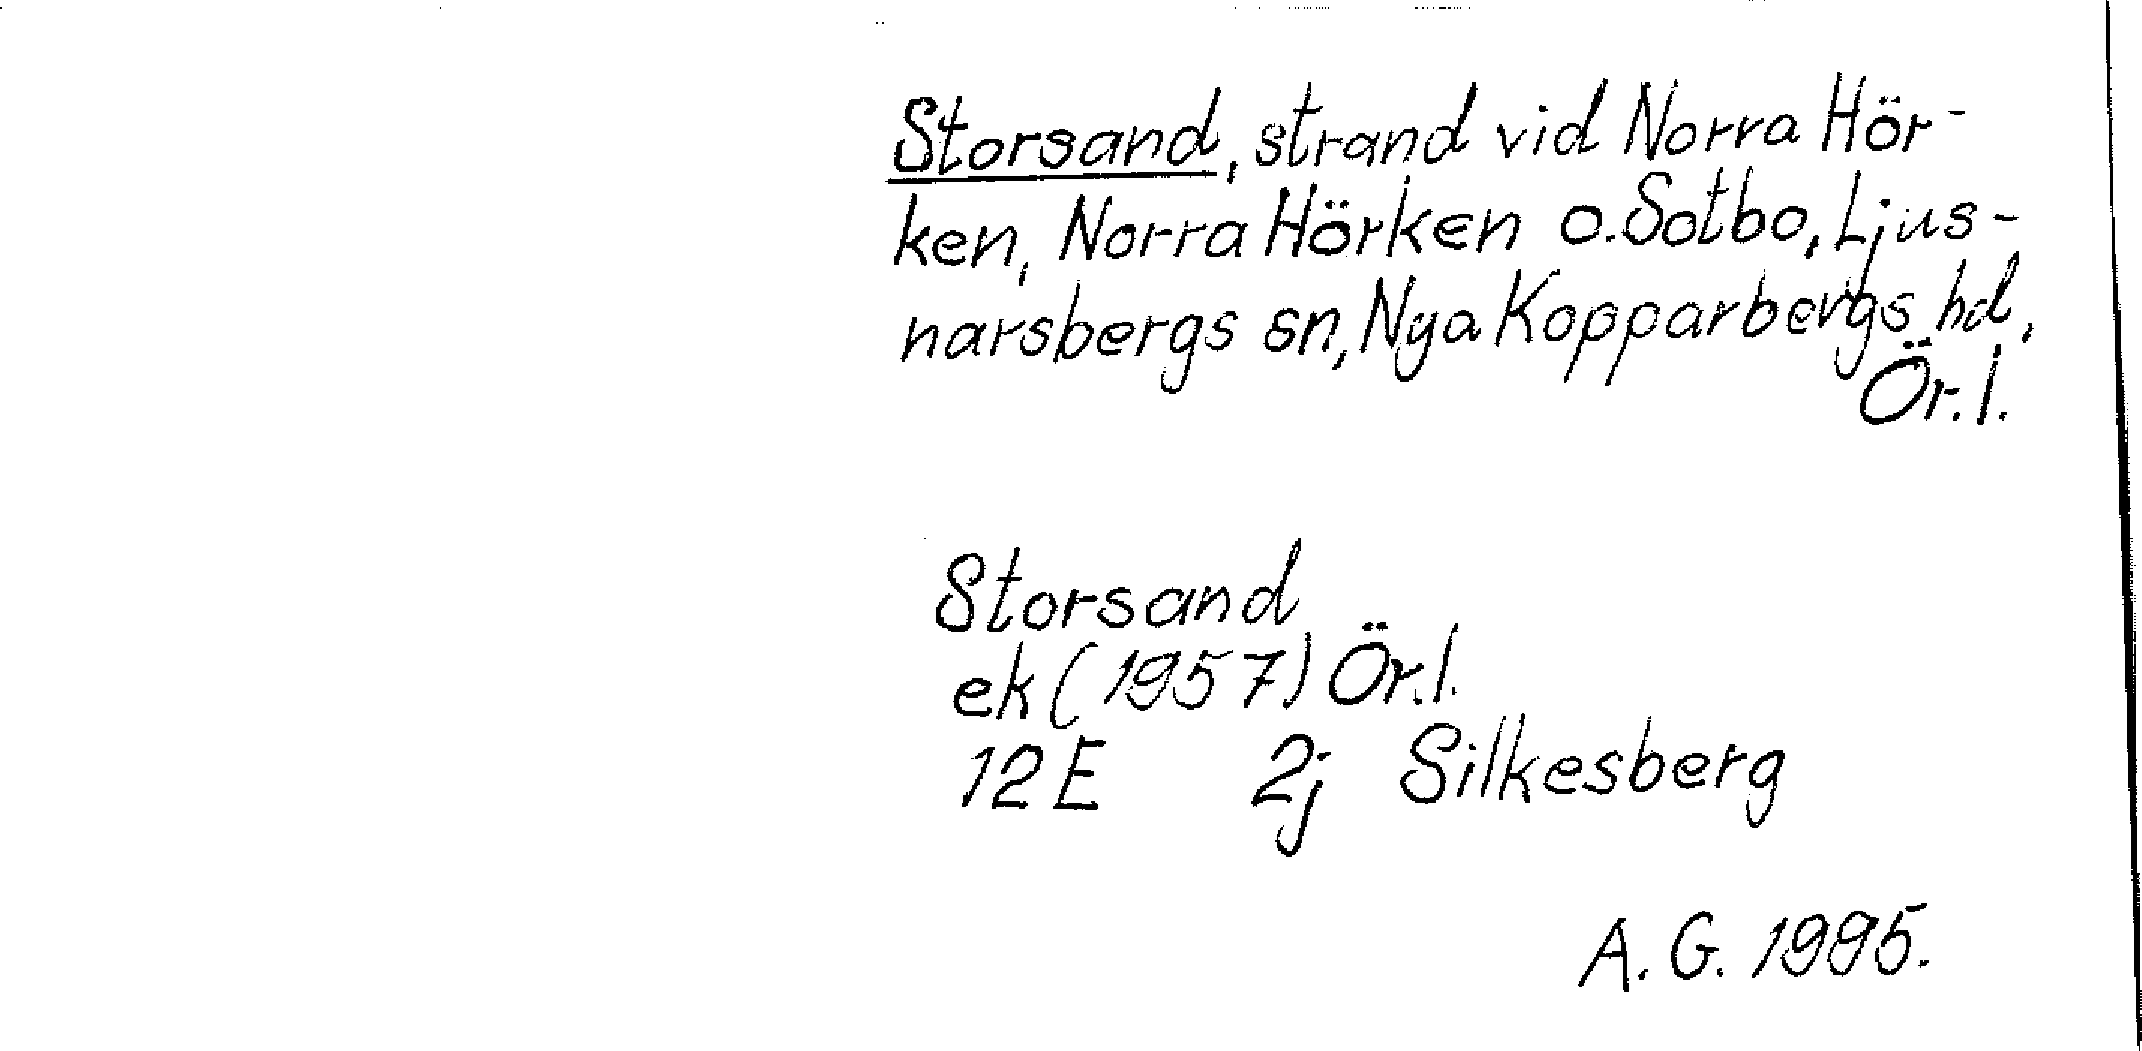 Storsand, strand vid Norra Hör-
ken, Norra Hörken o. Sotbo, Ljus-
narsbergs sn, Nya Kopparbergs hd,
Ör. l.
Storsand
ek (1957) Ör. l.
12 E 2j Silkesberg
A. G. 1995.